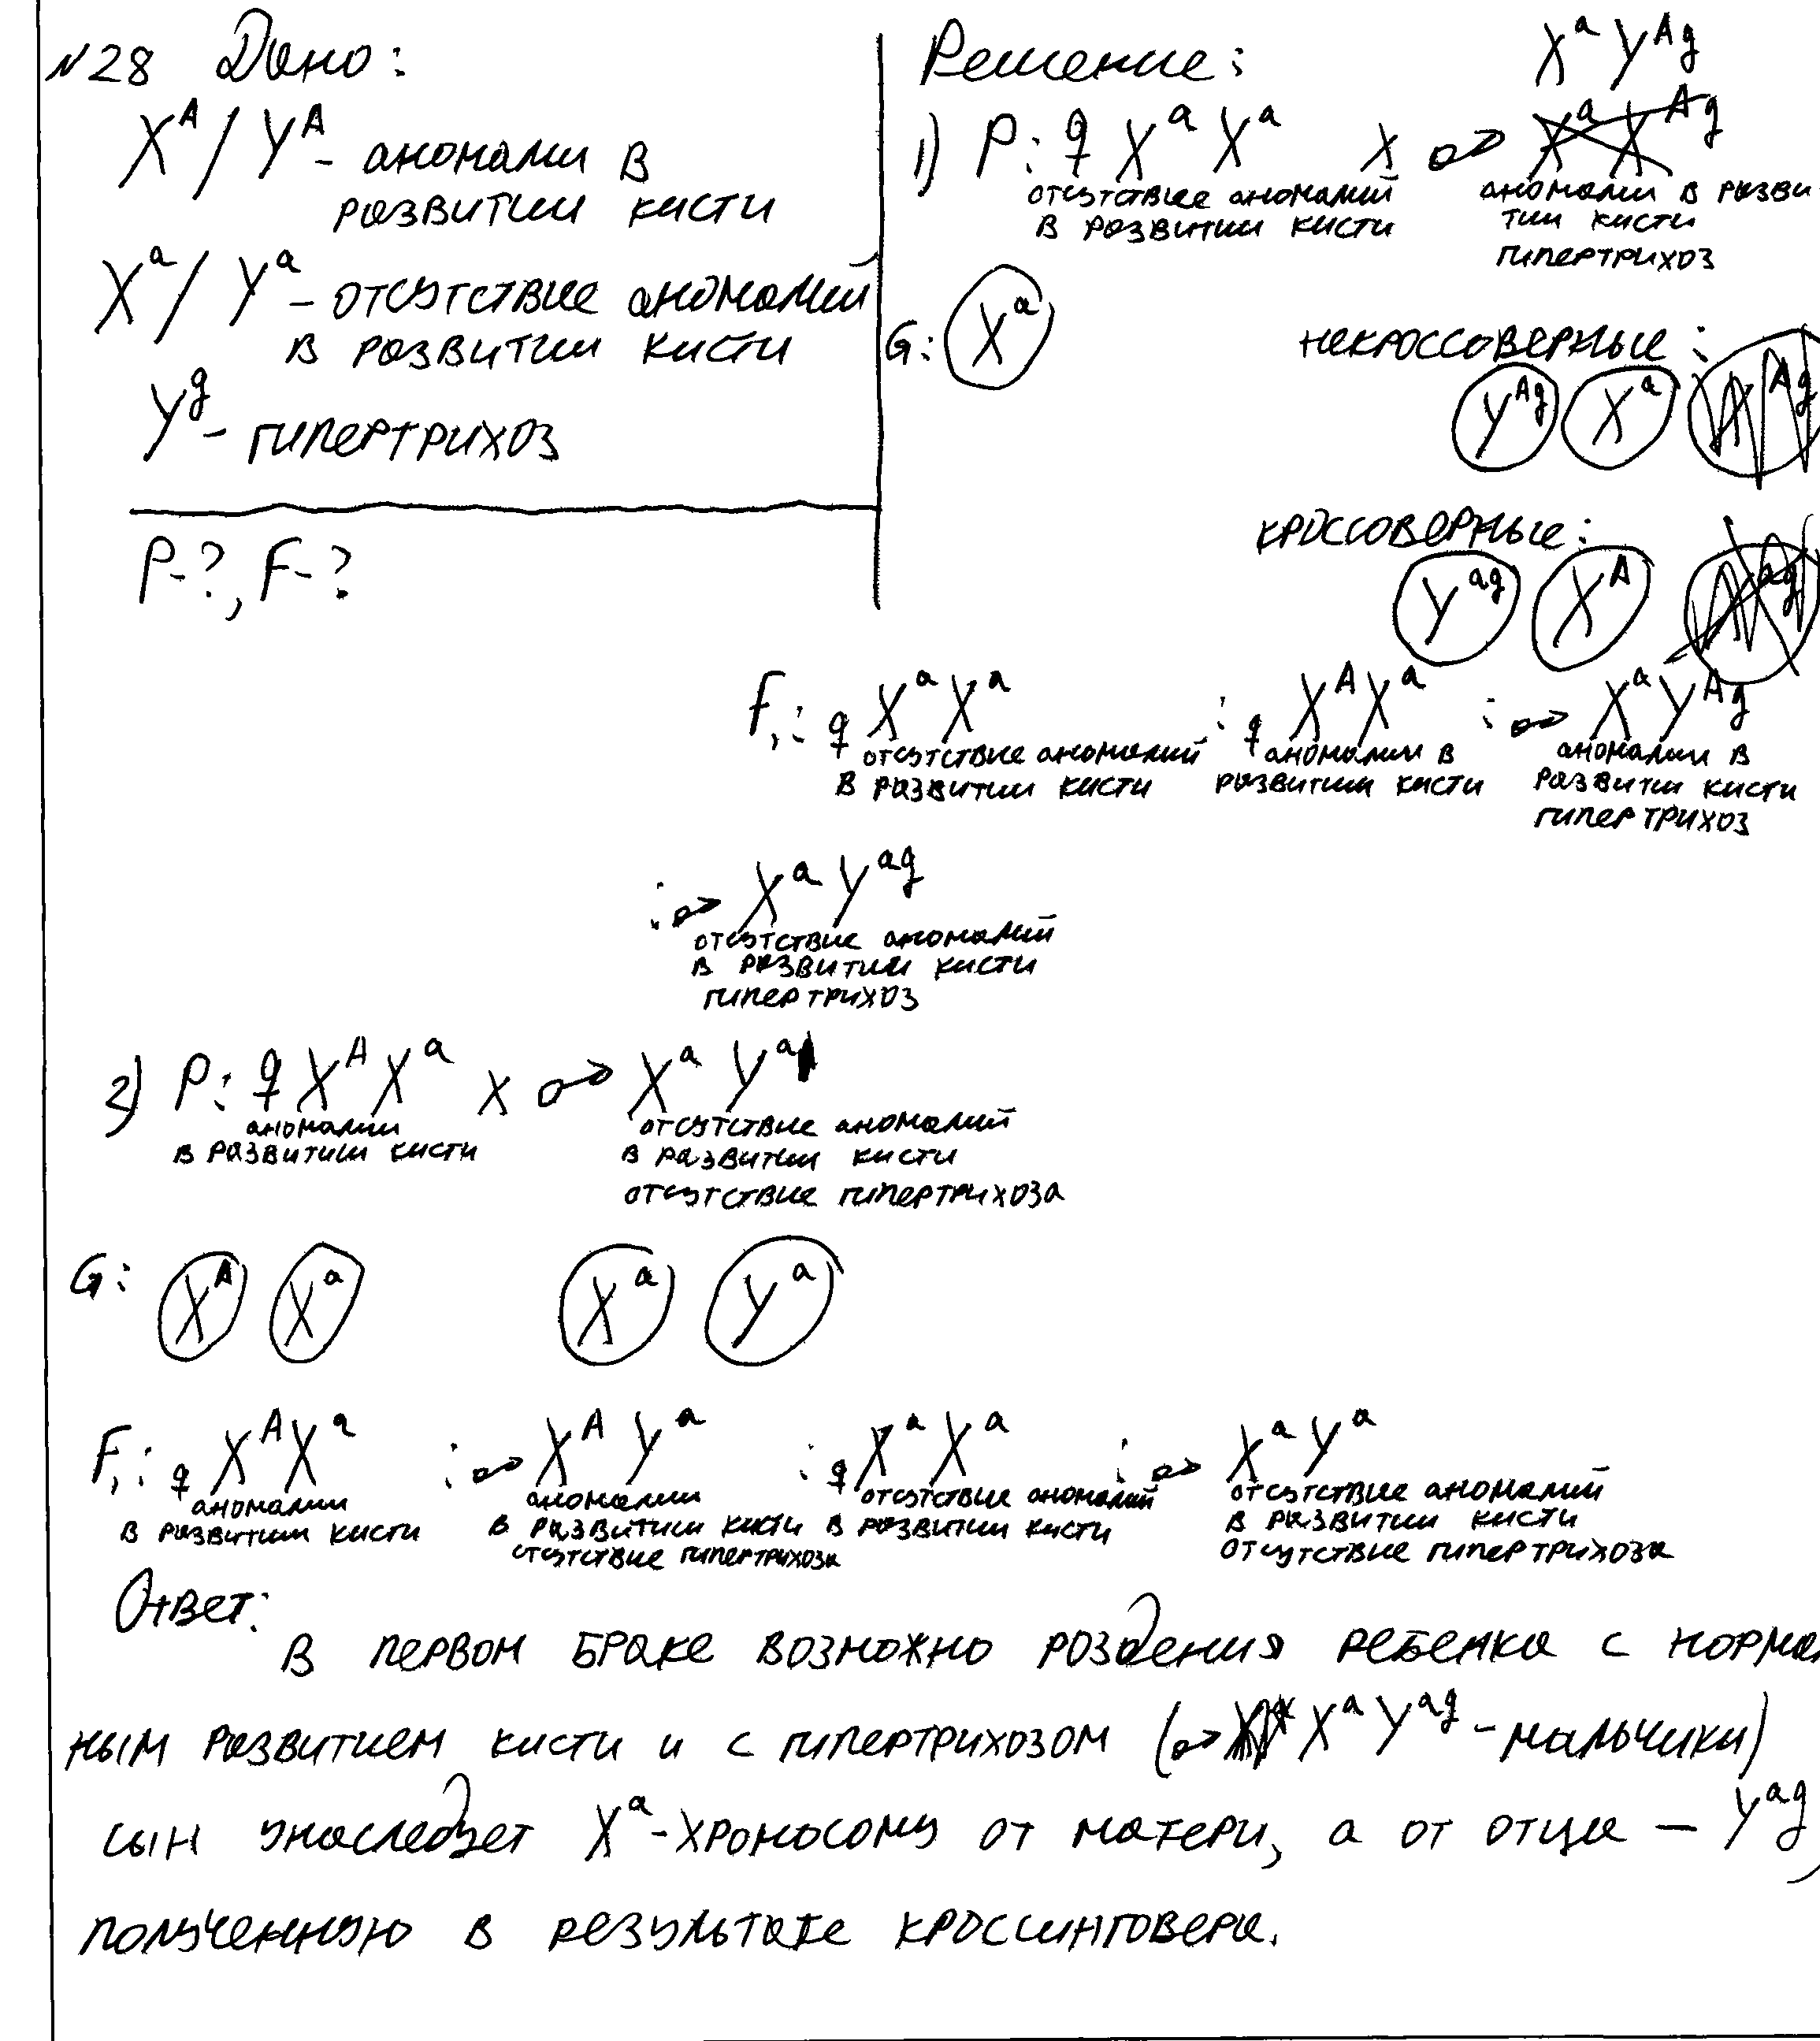 №28 Дано:
X^A / Y^A - аномалии в
развитии кисти
X^a / Y^a - отсутствие аномалий
в развитии кисти
Y^g - гипертрихоз
P-?, F-?
Решение:
X^a Y^Ag
1) P: ♀ X^a X^a x ♂
отсутствие аномалий
в развитии кисти
аномалии в разви
тии кисти
гипертрихоз
G: X^a
некроссоверные:
Y^Ag X^a
кроссоверные:
Y^ag X^A
F₁: ♀ X^a X^a : ♀ X^A X^a : ♂ X^a Y^Ag
отсутствие аномалий
в развитии кисти
аномалии в
развитии кисти
аномалии в
развити кисти
гипертрихоз
: ♂ X^a Y^ag
отсутствие аномалий
в развитии кисти
гипертрихоз
2) P: ♀ X^A X^a x ♂ X^a Y^a
аномалии
в развитии кисти
отсутствие аномалий
в развитии кисти
отсутствие гипертрихоза
G: X^A X^a X^a Y^a
F₁: ♀ X^A X^a : ♂ X^A Y^a : ♀ X^a X^a : ♂ X^a Y^a
аномалии
в развитии кисти
аномалии
в развитии кисти
отсутствие гипертрихоза
отсутствие аномалий
в развитии кисти
отсутствие аномалий
в развитии кисти
отсутствие гипертрихоза
Ответ:
В первом браке возможно роздения ребенка с нормал
ным развитием кисти и с гипертрихозом (♂ X^a Y^ag - мальчики)
сын унаследует X^a-хромосому от матери, а от отца — Y^ag,
полученную в результате кроссинговера.